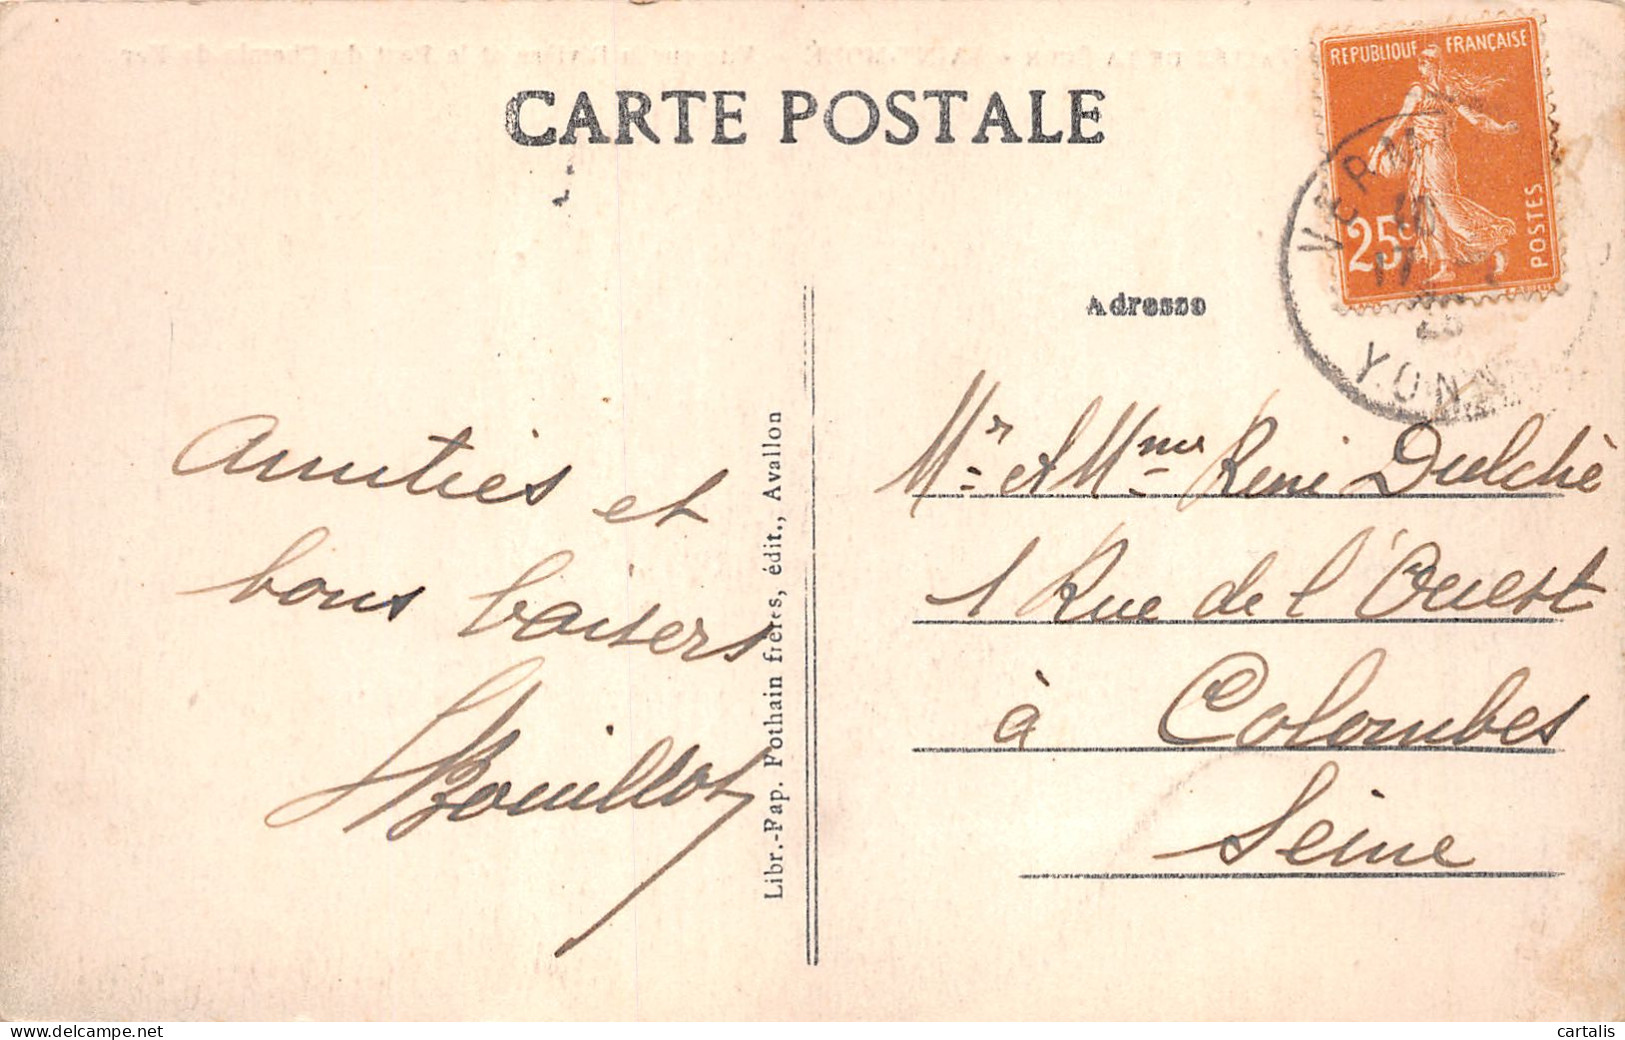 CARTE POSTALE
REPUBLIQUE FRANÇAISE
25c
POSTES
VERM
10
17
YONN
Adresse
Amitiés et
bons baisers
Bouillot
Libr.-Pap. Pothain frères, édit., Avallon
Mr et Mme René Dulché
1 Rue de l'Ouest
à Colombes
Seine
cartalis